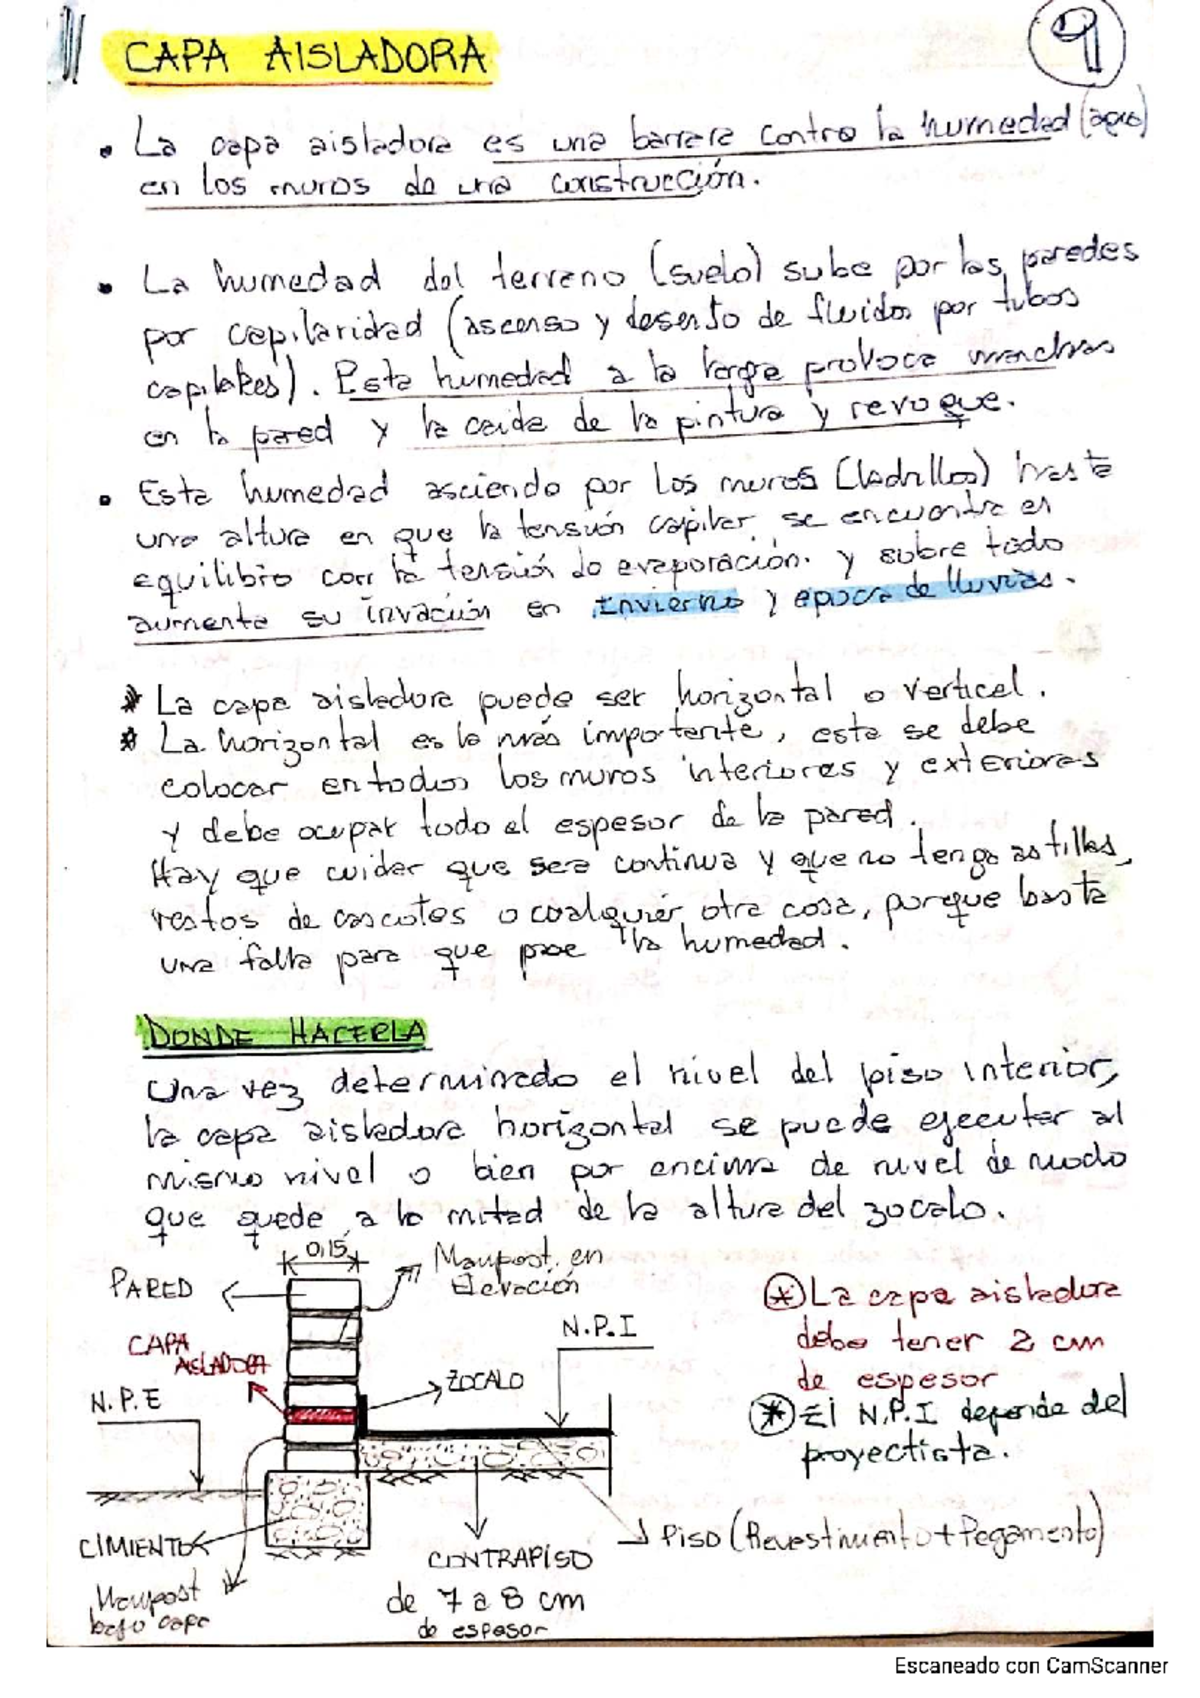 9
CAPA AISLADORA
• La capa aisladora es una barrera contra la humedad (agua)
en los muros de una construcción.
• La humedad del terreno (suelo) sube por las paredes
por capilaridad (ascenso y desenso de fluidos por tubos
capilares). Esta humedad a la larga provoca manchas
en la pared y la caida de la pintura y revoque.
• Esta humedad asciende por los muros (ladrillos) hasta
una altura en que la tensión capilar se encuentra en
equilibrio con la tensión de evaporación. y sobre todo
aumenta su invación en invierno y epoca de lluvias.
* La capa aisladora puede ser horizontal o vertical.
* La horizontal es la más importante, esta se debe
colocar en todos los muros interiores y exteriores
y debe ocupar todo el espesor de la pared.
Hay que cuidar que sea continua y que no tenga astillas,
restos de cascotes o cualquier otra cosa, porque basta
una falla para que pase la humedad.
DONDE HACERLA
Una vez determinado el nivel del piso interior,
la capa aisladora horizontal se puede ejecutar al
mismo nivel o bien por encima de nivel de modo
que quede a la mitad de la altura del zocalo.
0,15
Mampost. en
Elevación
PARED
CAPA
AISLADORA
N.P.E
ZOCALO
N.P.I
* La capa aisladora
debe tener 2 cm
de espesor
* El N.P.I depende del
proyectista.
CIMIENTO
Mampost
bajo capa
CONTRAPISO
de 7 a 8 cm
de espesor
Piso (Revestimiento + Pegamento)
Escaneado con CamScanner